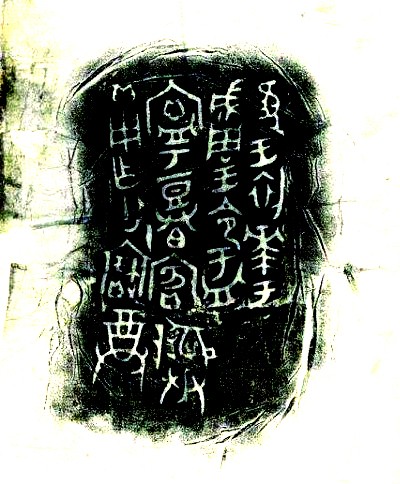 隹王初𠦪于
成周王令盂
寧登白賓貝
用乍父寶尊彝